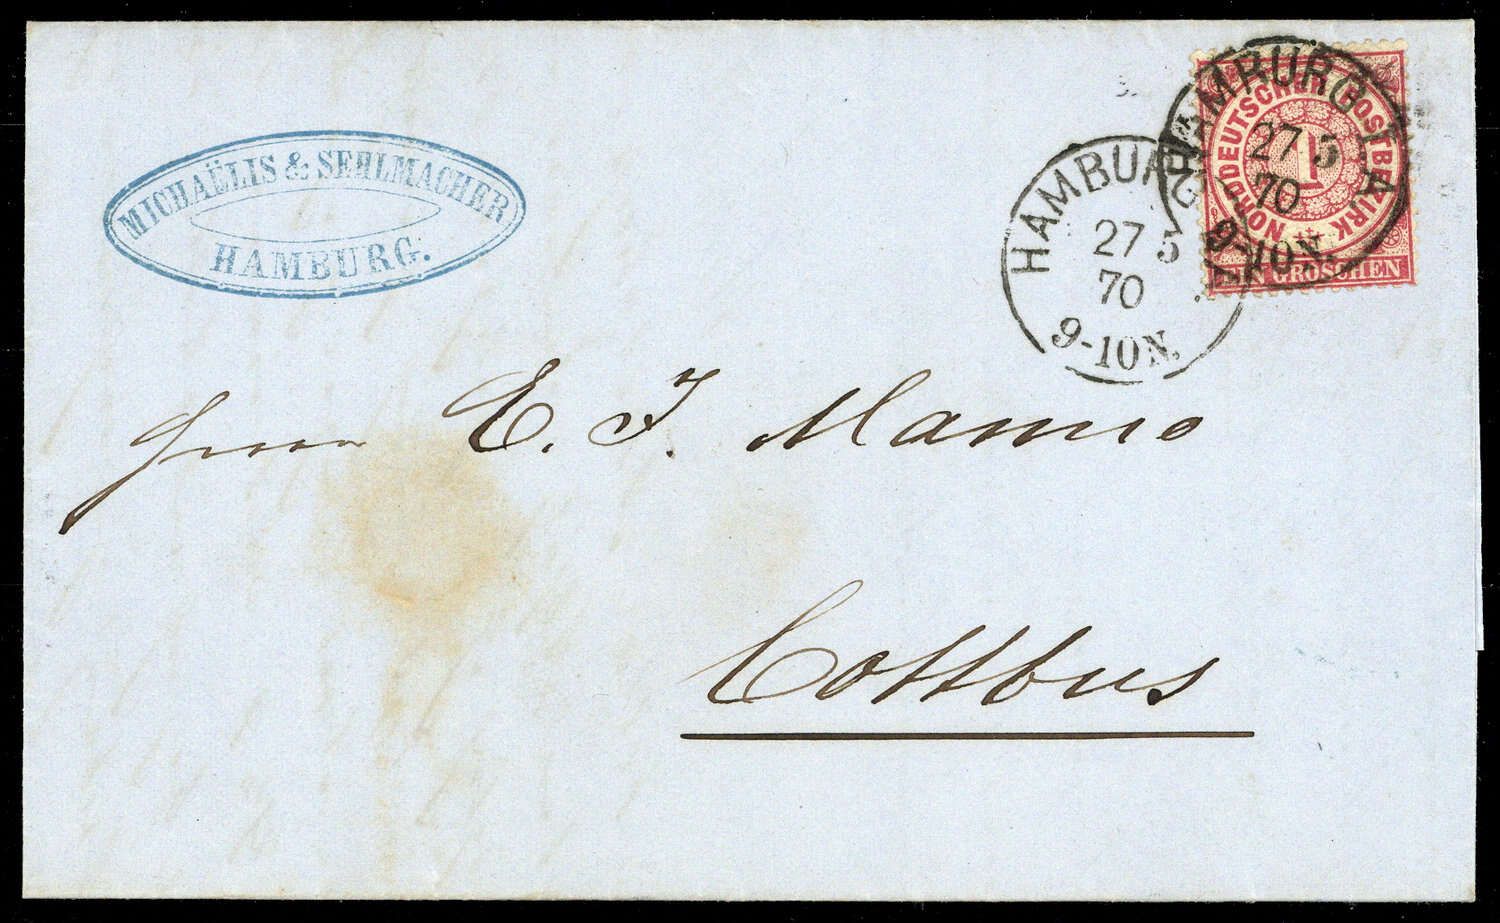 MICHAËLIS & SEHLMACHER
HAMBURG.
HAMBURG
27 5
70
9-10 N.
HAMBURG I. A.
27 5
70
9-10 N.
NORDDEUTSCHER POSTBEZIRK
1
EIN GROSCHEN
Herrn E. J. Manno
Cottbus